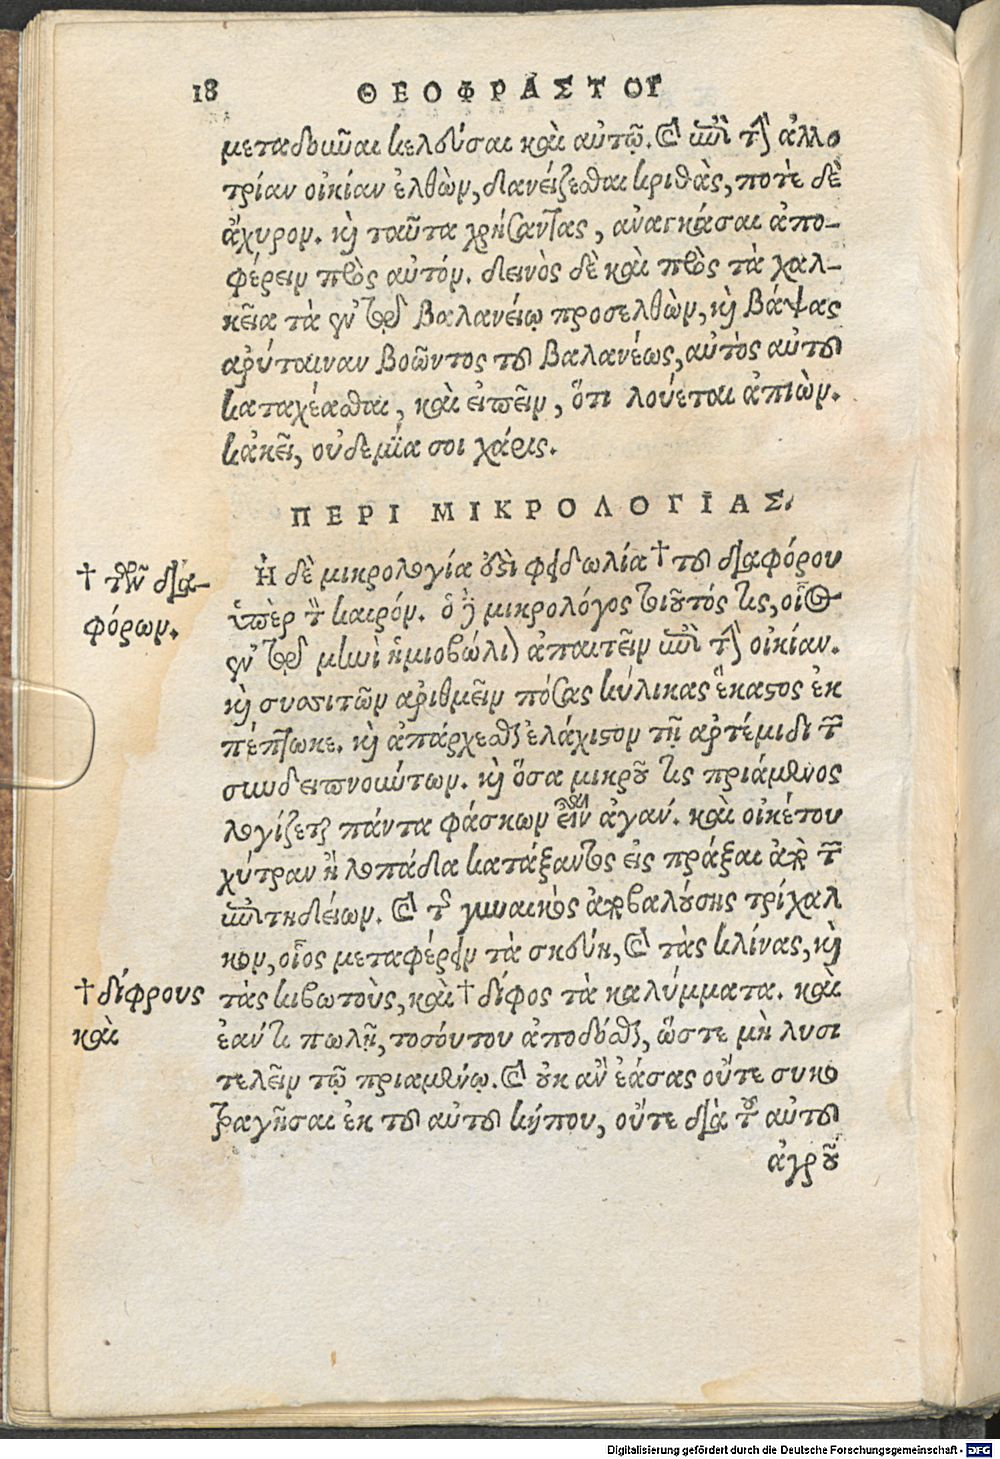 18 ΘΕΟΦΡΑΣΤΟΥ
μεταδοῦναι κελεύσαι καὶ αὐτῷ. καὶ ἐπὶ τὴν ἀλλο
τρίαν οἰκίαν ἐλθὼν, δανείζεσθαι κριθὰς, ποτὲ δὲ
ἄχυρον. καὶ ταῦτα χρήσαντας, ἀναγκάσαι ἀπο-
φέρειν πρὸς αὐτόν. δεινὸς δὲ καὶ πρὸς τὰ χαλ-
κεῖα τὰ ἐν τῷ βαλανείῳ προσελθὼν, καὶ βάψας
ἀρύταιναν βοῶντος τοῦ βαλανέως, αὐτὸς αὑτοῦ
καταχέασθαι, καὶ εἰπεῖν, ὅτι λούεται ἀπιὼν.
κἀκεῖ, οὐδεμία σοι χάρις.
ΠΕΡΙ ΜΙΚΡΟΛΟΓΙΑΣ.
Ἡ δὲ μικρολογία ἐστὶ φειδωλία † τοῦ διαφόρου
ὑπὲρ τὸν καιρόν. ὁ δὲ μικρολόγος τοιοῦτός τις, οἷος
ἐν τῷ μηνὶ ἡμιοβώλιον ἀπαιτεῖν ἐπὶ τὴν οἰκίαν.
καὶ συσσιτῶν ἀριθμεῖν πόσας κύλικας ἕκαστος ἐκ
πέπτωκε. καὶ ἀπάρχεσθαι ἐλάχιστον τῇ ἀρτέμιδι τῶν
συνδειπνούντων. καὶ ὅσα μικροῦ τις πριάμενος
λογίζεται πάντα φάσκων εἶναι ἀγαν. καὶ οἰκέτου
χύτραν ἢ λοπάδα κατάξαντος εἰσπράξαι ἀπὸ τῶν
ἐπιτηδείων. καὶ τῆς γυναικὸς ἀποβαλούσης τρίχαλ
κον, οἷος μεταφέρειν τὰ σκεύη, καὶ τὰς κλίνας, καὶ
τὰς κιβωτοὺς, καὶ † δίφος τὰ καλύμματα. καὶ
ἐάν τι πωλῇ, τοσούτου ἀποδόσθαι, ὥστε μὴ λυσι
τελεῖν τῷ πριαμένῳ. καὶ οὐκ ἂν ἐάσας οὔτε συκο
τραγῆσαι ἐκ τοῦ αὑτοῦ κήπου, οὔτε διὰ τοῦ αὑτοῦ
ἀγροῦ
† τῶν δια-
φόρων.
† δίφρους
καὶ
Digitalisierung gefördert durch die Deutsche Forschungsgemeinschaft - DFG